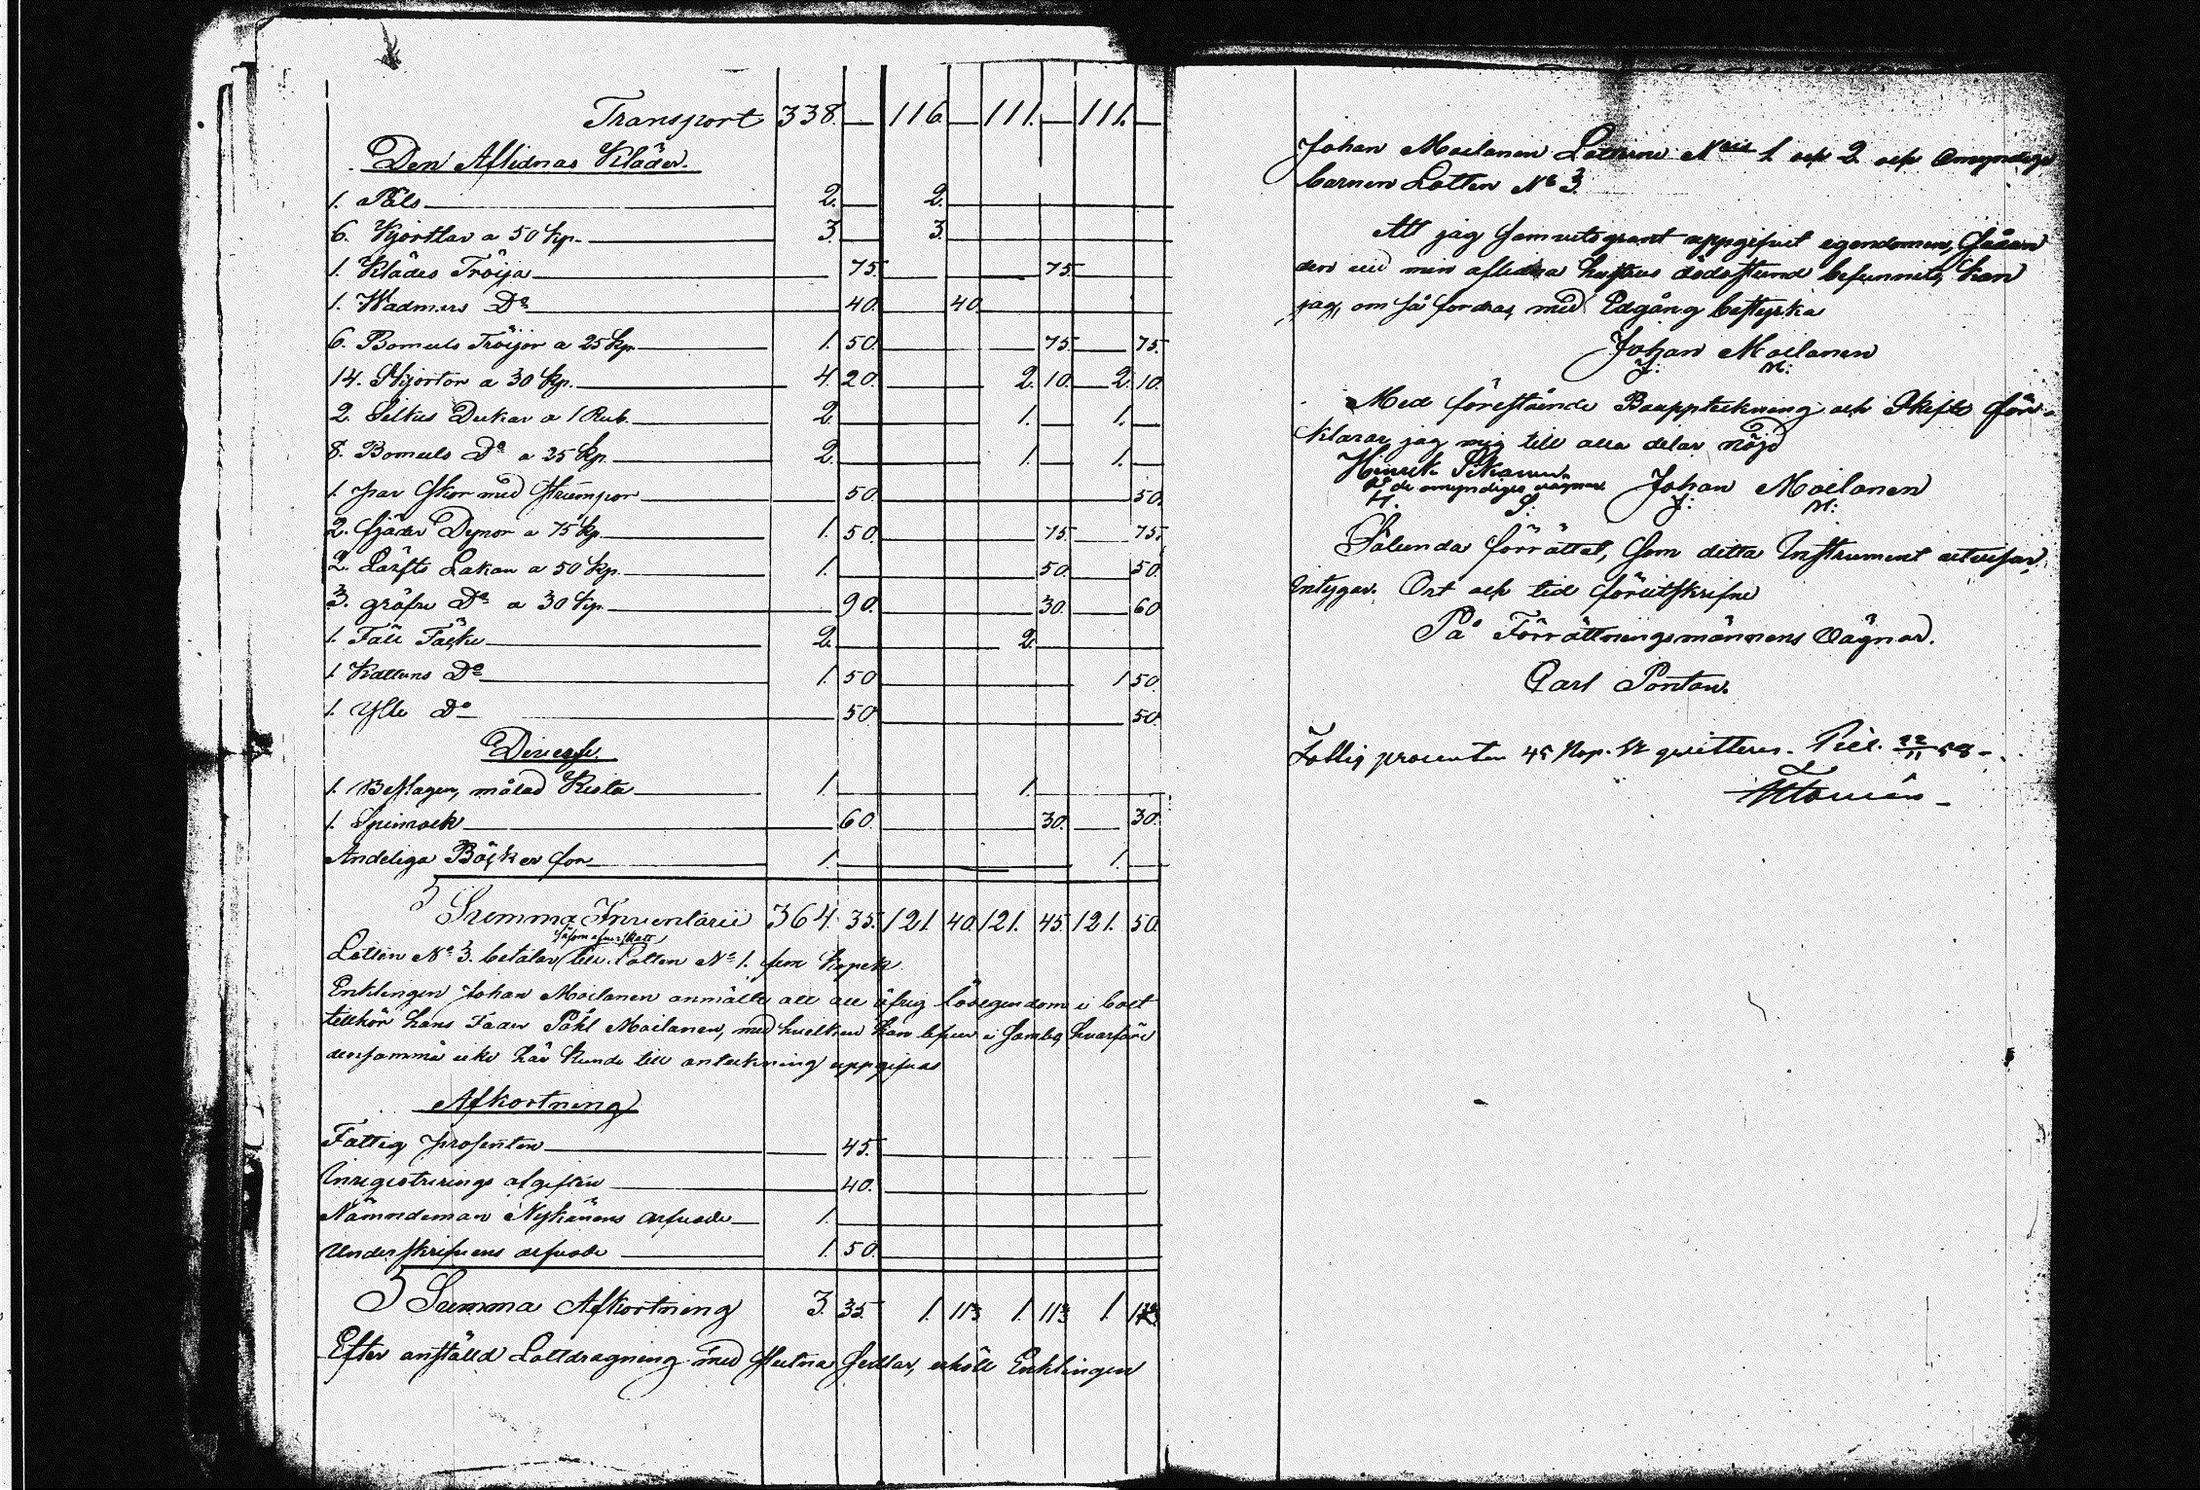 Transport 338. — 116. — 111. — 111. —
Den Aflidnas Kläder.
1. Päls 2. — 2.
6. Kjortlar a 50 kp. 3. — 3.
1. Klädes Tröija 75. 75.
1. Wadmars Do 40. 40.
6. Bomuls Tröijor a 25 kp. 1. 50. 75. 75.
14. Skjortor a 30 kp. 4. 20. 2. 10. 2. 10.
2. Silkes Dukar a 1 Rub. 2. 1. — 1. —
8. Bomuls Do a 25 kp. 2. 1. — 1. —
1. par Skor med Strumpor 50. 50.
2. fjäder Dynor a 75 kp. 1. 50. 75. 75.
2. Lärfts Lakan a 50 kp. 1. 50. 50.
3. gröfre Do a 30 kp. 90. 30. 60
1. Fäll Täcke 2. 2.
1. Kattuns Do 1. 50 1 50.
1. Ylle Do 50. 50.
Diverse.
1. Beslagen, målad Kista 1. 1.
1. Spinrock 60. 30. 30.
Andeliga Böcker för 1. 1. —
Summa Inventarii 364. 35. 121. 40. 121. 45. 121. 50.
Lotten No 3. betalar till Lotten No 1. fem kopek.
Enklingen Johan Moilanen anmälte att all öfrig lösegendom i boet
tillhör hans Fader Påhl Moilanen, med hvilken han lefver i sambo, hvarföre
densamma icke här kunde till anteckning uppgifvas
Afkortning
Fattig prosenten 45.
Inregistrerings afgiften 40.
Nämndeman Nykänens arfvode 1.
Underskrifvens arfvode 1. 50.
Summa Afkortning 3. 35. 1. 11⅔ 1. 11⅔ 1.
Efter anställd Lottdragning med slutna sedlar, erhöll Enklingen
Johan Moilanen Lotterne 1 och 2 och Omyndiga
barnen Lotten No 3.
Att jag samvetsgrant uppgifvit egendomen, sådan
den vid min aflidna hustrus dödsstund befunnits, kan
jag, om så fordras, med Edgång bestyrka
Johan Moilanen
J: M:
Med förestående Bouppteckning och Skifte för-
klarar jag mig till alla delar nöjd
Hinrik
på de omyndiges vägnar Johan Moilanen
H. S: J: M:
Sålunda förrättat, som detta Instrument utvisar,
intygar. Ort och tid förutskrifne
På Förrättningsmännens vägnar.
Carl Pontan.
Fattig procenten 45 Kop. Sr qvitteras. Piel. 22/11 58 -